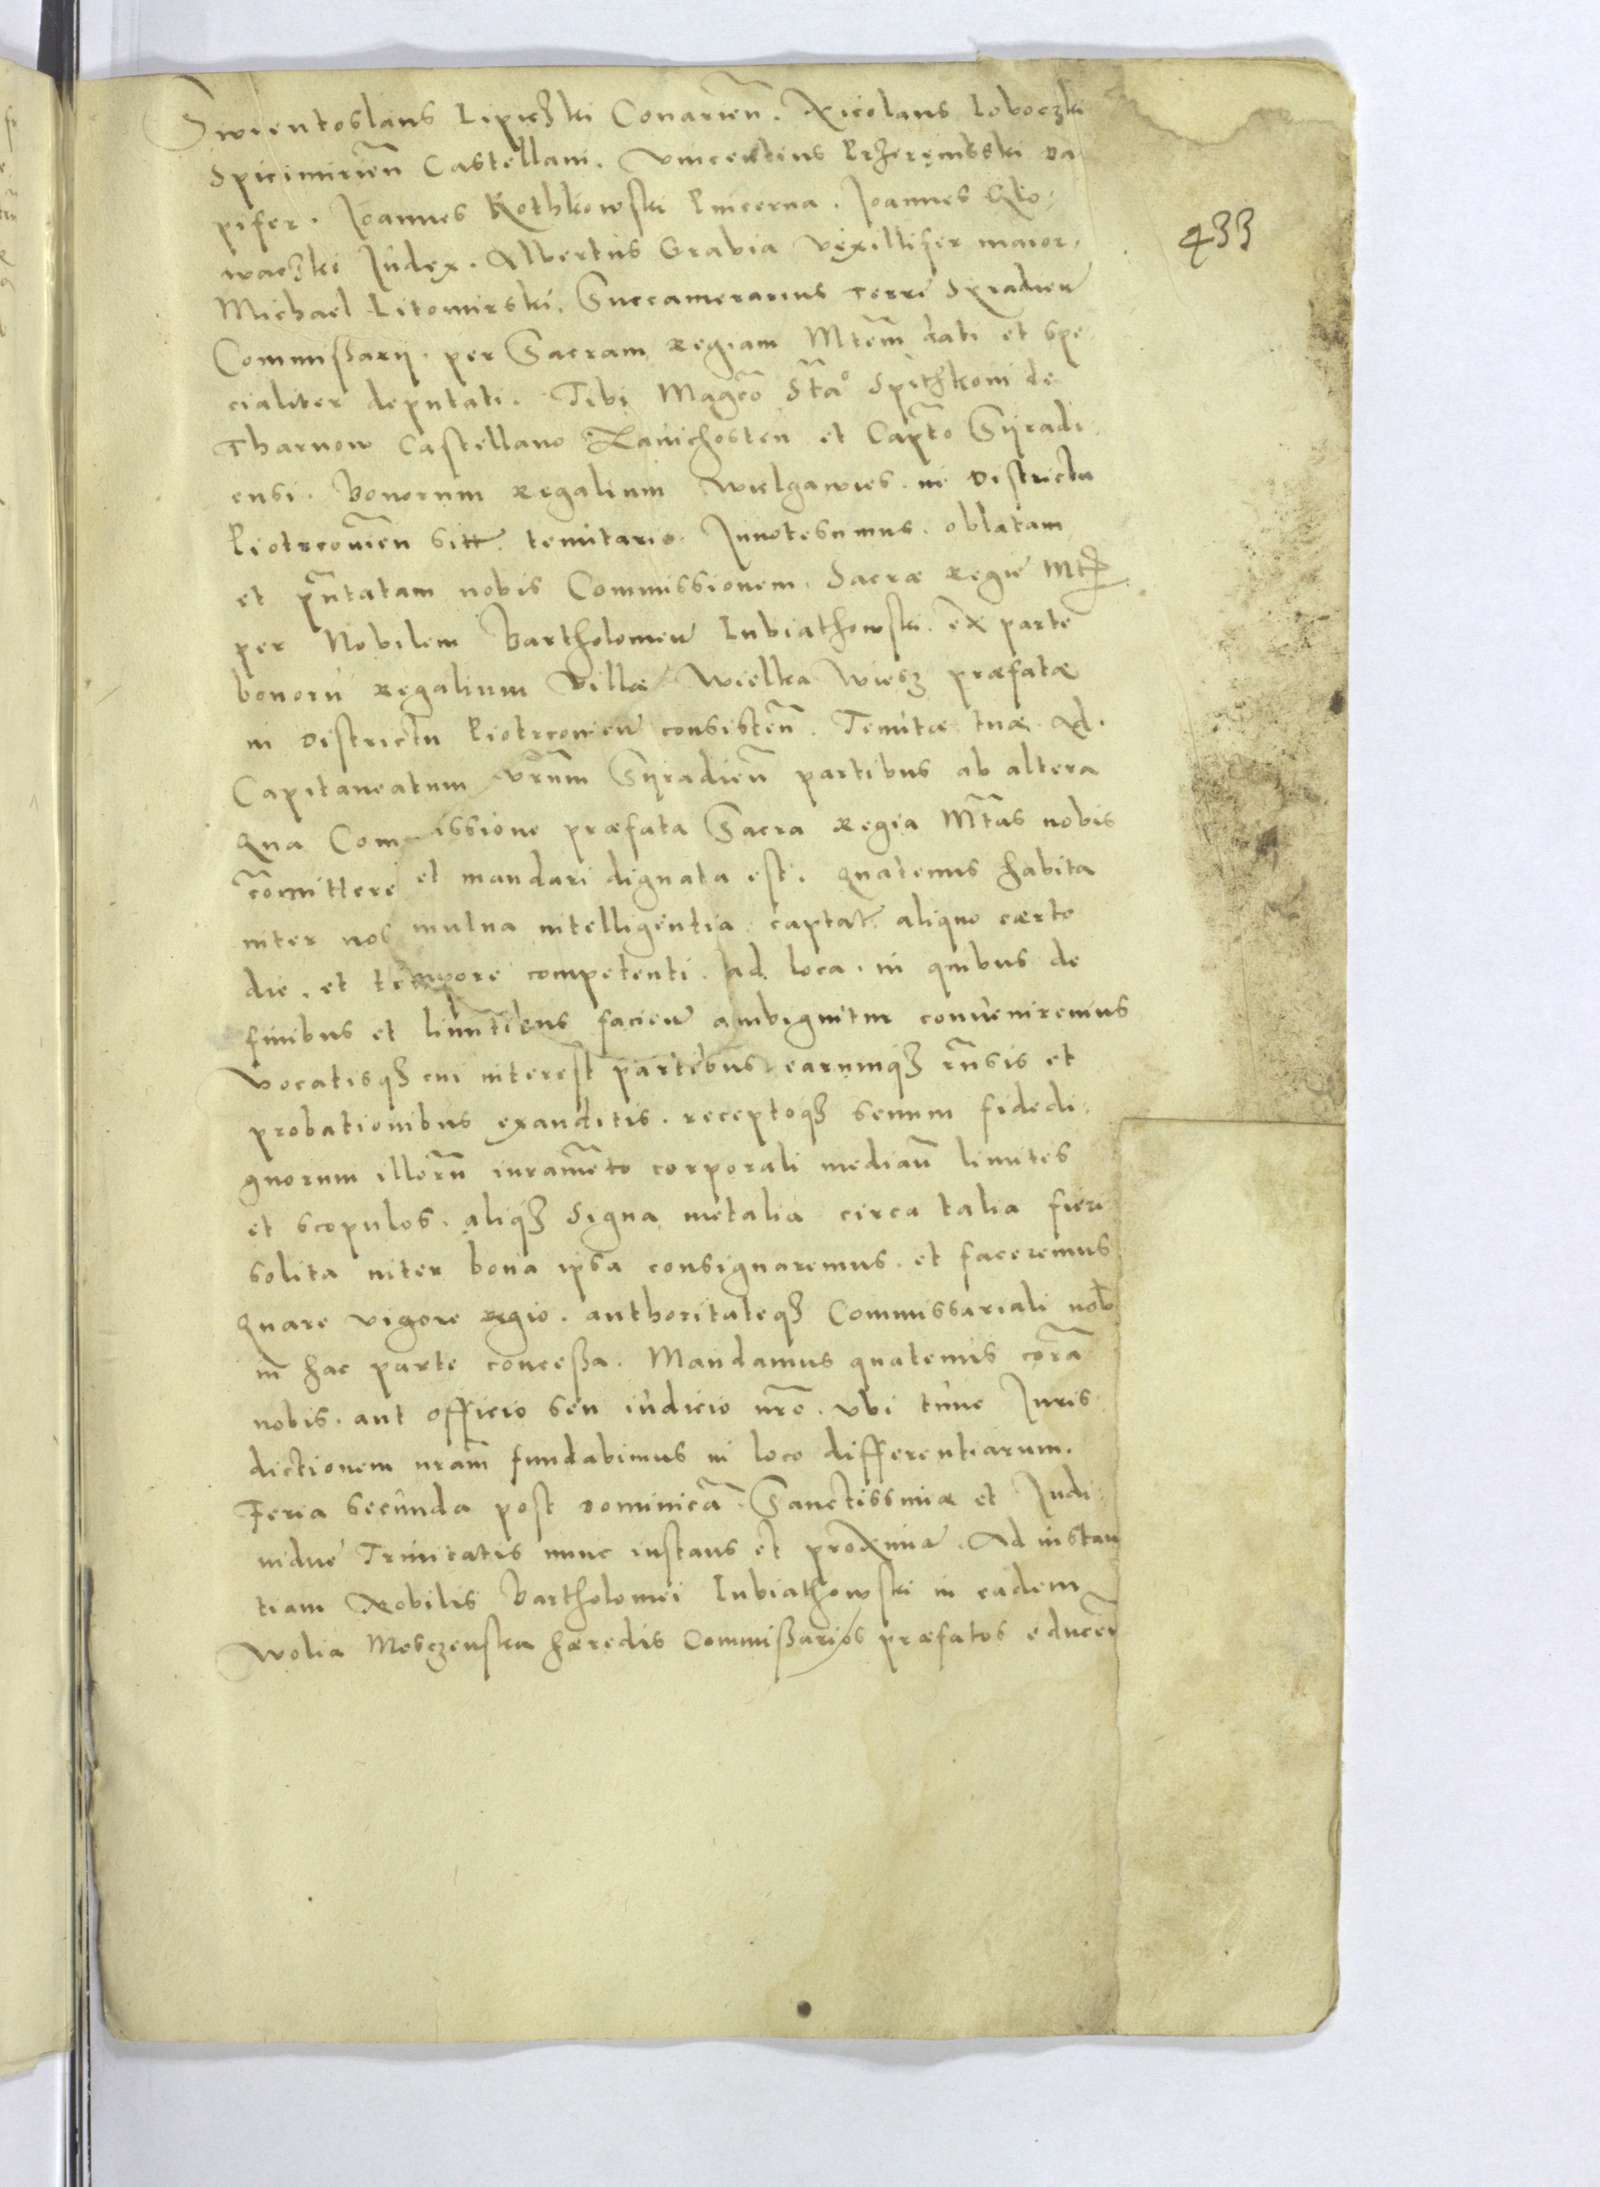 Swientoslaus Lipiczki Conarien̄. Nicolaus Loboczki
Spicimirien̄ Castellani. Vincentius Przerembski Da
pifer. Joannes Kothkowski Pincerna. Joannes Glo
waczki Judex. Albertus Grabia Vexillifer maior.
Michael Litomirski. Succamerarius terre Syradien̄
Commissarij. per Sacram Regiam Mtēm dati et spe
cialiter deputati. Tibi Magco Sta° Spithkoni de
Tharnow Castellano Zavichosten et Capto Syradi
ensi. bonorum Regalium Wielgawies. in Districtu
Piotrcovien̄ sitt. tenutario. Innotescimus. oblatam
et pn̄tatam nobis Commissionem. Sacræ Regie Mtis
per Nobilem Bartholomeu Lubiathowski. ex parte
bonorū regalium Villæ Wielka Wiesz præfatæ
in Districtu Piotrcovien̄ consisten̄. Tenutæ tuæ. Ad.
Capitaneatum vr̄um Syradien̄ partibus ab altera
Qua Commissione præfata Sacra Regia Mtas nobis
com̄ittere et mandari dignata est. quatenus habita
inter nos mutua intelligentia. captat. aliquo certo
die. et tempore competenti. ad loca. in quibus de
finibus et limitibus facien̄ ambiguitur conveniremus
Vocatisq3 cui interest partibus earumq3 rn̄sis et
probationibus exauditis. receptoq3 senum fidedi
gnorum illorū iuramēto corporali median̄ limites
et scopulos. aliaq3 signa metalia circa talia fieri
solita inter bona ipsa consignaremus. et faceremus
Quare vigore regio. authoritateq3 Commissariali nob̄
in hac parte concessa. Mandamus quatenus corā
nobis. aut officio seu iudicio nr̄o. ubi tunc Juris
dictionem nr̄am fundabimus in loco differentiarum.
Feria secunda post Dominicā Sanctissimæ et Indi
vidue Trinitatis nunc instans et proxima. Ad instan
tiam Nobilis Bartholomei Lubiathowski in eadem
Wolia Mosczenska hæredis Commissarios præfatos educen̄
433